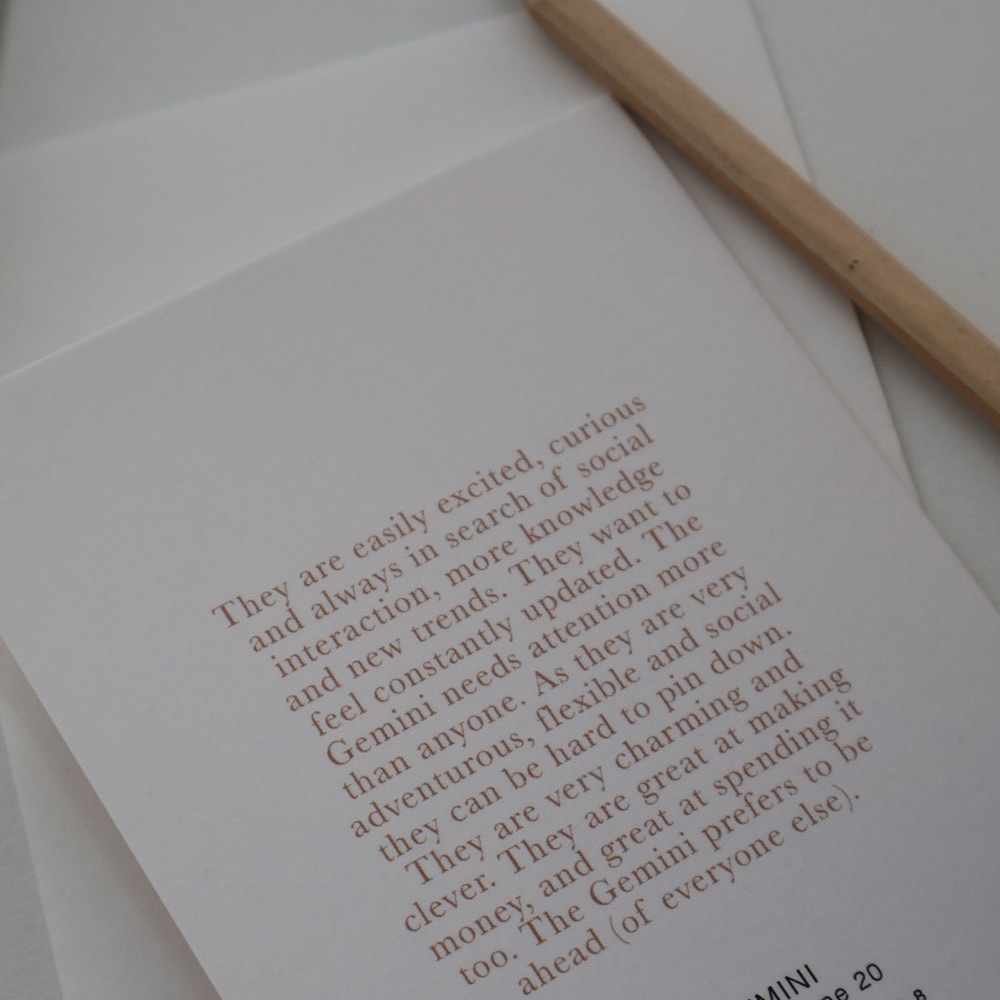 They are easily excited, curious
and always in search of social
interaction, more knowledge
and new trends. They want to
feel constantly updated. The
Gemini needs attention more
than anyone. As they are very
adventurous, flexible and social
they can be hard to pin down.
They are very charming and
clever. They are great at making
money, and great at spending it
too. The Gemini prefers to be
ahead (of everyone else).
20